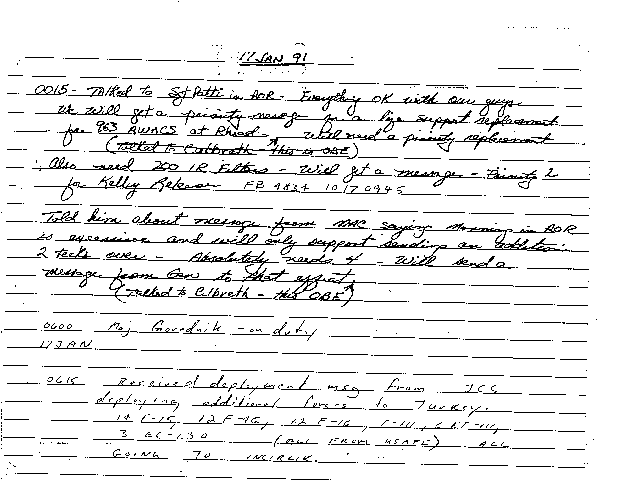 17 JAN 91
0015 - Talked to Sgt Patti in AOR - Everything OK with our guys.
We will get a priority message for a life support replacement
for 963 AWACS at Riyad - Will need a priority replacement
(Talked to Culbrath - This is OBE)
Also need 200 IR Filters - Will get a message - Priority 2
for Kelley Release FB 4834 1017 0945
Told him about message from saying manning in AOR
is excessive and will only support sending an addition
2 techs over - Absolutely needs 4 - Will send a
message from Gen to that effect,
(Talked to Culbrath - this OBE)
0600 Maj Govednik - on duty
17 JAN
0615 Received deployment msg from JCS
deploying additional forces to Turkey.
14 F-15, 12 F-4G, 12 F-16, F-111, 6 EF-111,
3 EC-130 (ALL FROM USAFE) ALL
GOING TO INCIRLIK.